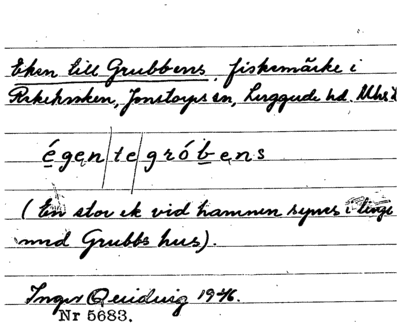 Eken till Grubbens, fiskemärke i
Jonstorps sn, Luggude hd. Mhs l
égen/te/gróbens
(En stor ek vid hamnen synes i linje
med Grubbs hus).
Inger Quiding 1946.
Nr 5683.